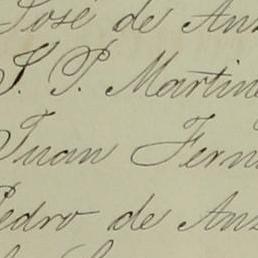 José de Anz
S. P. Martine
Juan Fern
Pedro de Anz